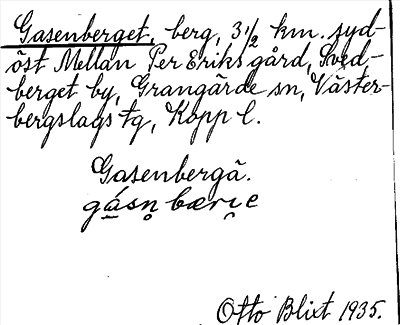 Gasenberget, berg, 3 1/2 km. syd-
öst Mellan Per Eriks gård, Sved-
berget by, Grangärde sn, Väster-
bergslags tg, Kopp l.
Gasenbergä.
Otto Blixt 1935.